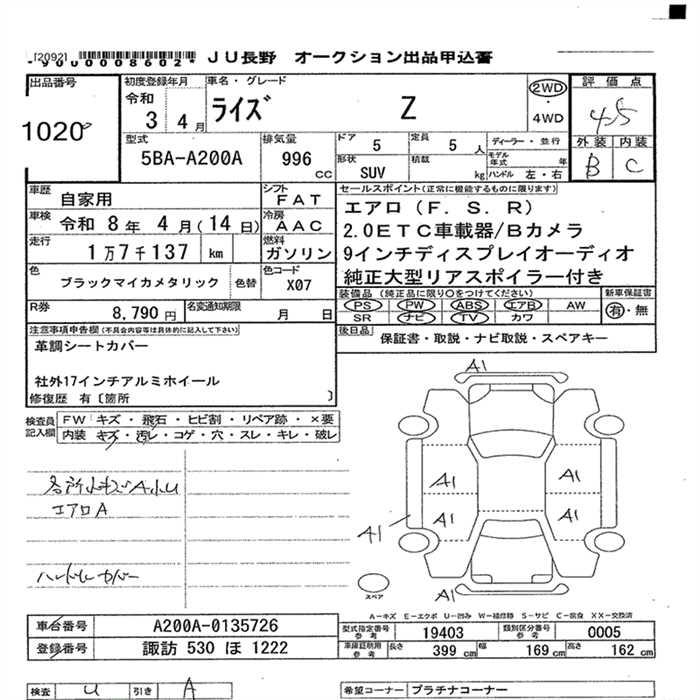 [2092]
*9000008602* JU長野 オークション出品申込書
出品番号 初度登録年月 車名・グレード 評価点
1020 令和 3 4月 ライズ Z 2WD・4WD 4.5
外装 内装
B C
型式 排気量 ドア 定員 ディーラー・並行
5BA-A200A 996cc 5 5人 モデル年式 年
形状 SUV 積載 kg ハンドル 左・右
車歴 自家用 シフト FAT セールスポイント(正常に機能するものに限ります)
車検 令和 8年 4月(14日) 冷房 AAC エアロ(F.S.R)
2.0ETC車載器/Bカメラ
走行 1万7千137 km 燃料 ガソリン 9インチディスプレイオーディオ
色 ブラックマイカメタリック 色替 色コード X07 純正大型リアスポイラー付き
R券 8,790円 名変通知期限 月 日 装備品(純正品に限り○をつけてください) 新車保証書
PS PW ABS エアB AW 有・無
SR ナビ TV カワ
注意事項申告欄(不具合内容等は具体的に記入して下さい) 後日品 保証書・取説・ナビ取説・スペアキー
革調シートカバー
社外17インチアルミホイール
修復歴 有〔箇所 〕
検査員記入欄 FW キズ・飛石・ヒビ割・リペア跡・×要
内装 キズ・汚レ・コゲ・穴・スレ・キレ・破レ
各所小キズA小U
エアロA
ハンドルカバー
A1
A1 A1
A1 A1
A1
A1
スペア
A-キズ E-エクボ U-凹み W-補修跡 S-サビ C-腐食 XX-交換済
車台番号 A200A-0135726 型式指定番号 参考 19403 類別区分番号 参考 0005
登録番号 諏訪 530 ほ 1222 車庫証明用 参考 長さ 399 cm 幅 169 cm 高さ 162 cm
検査 U 引き A 希望コーナー プラチナコーナー